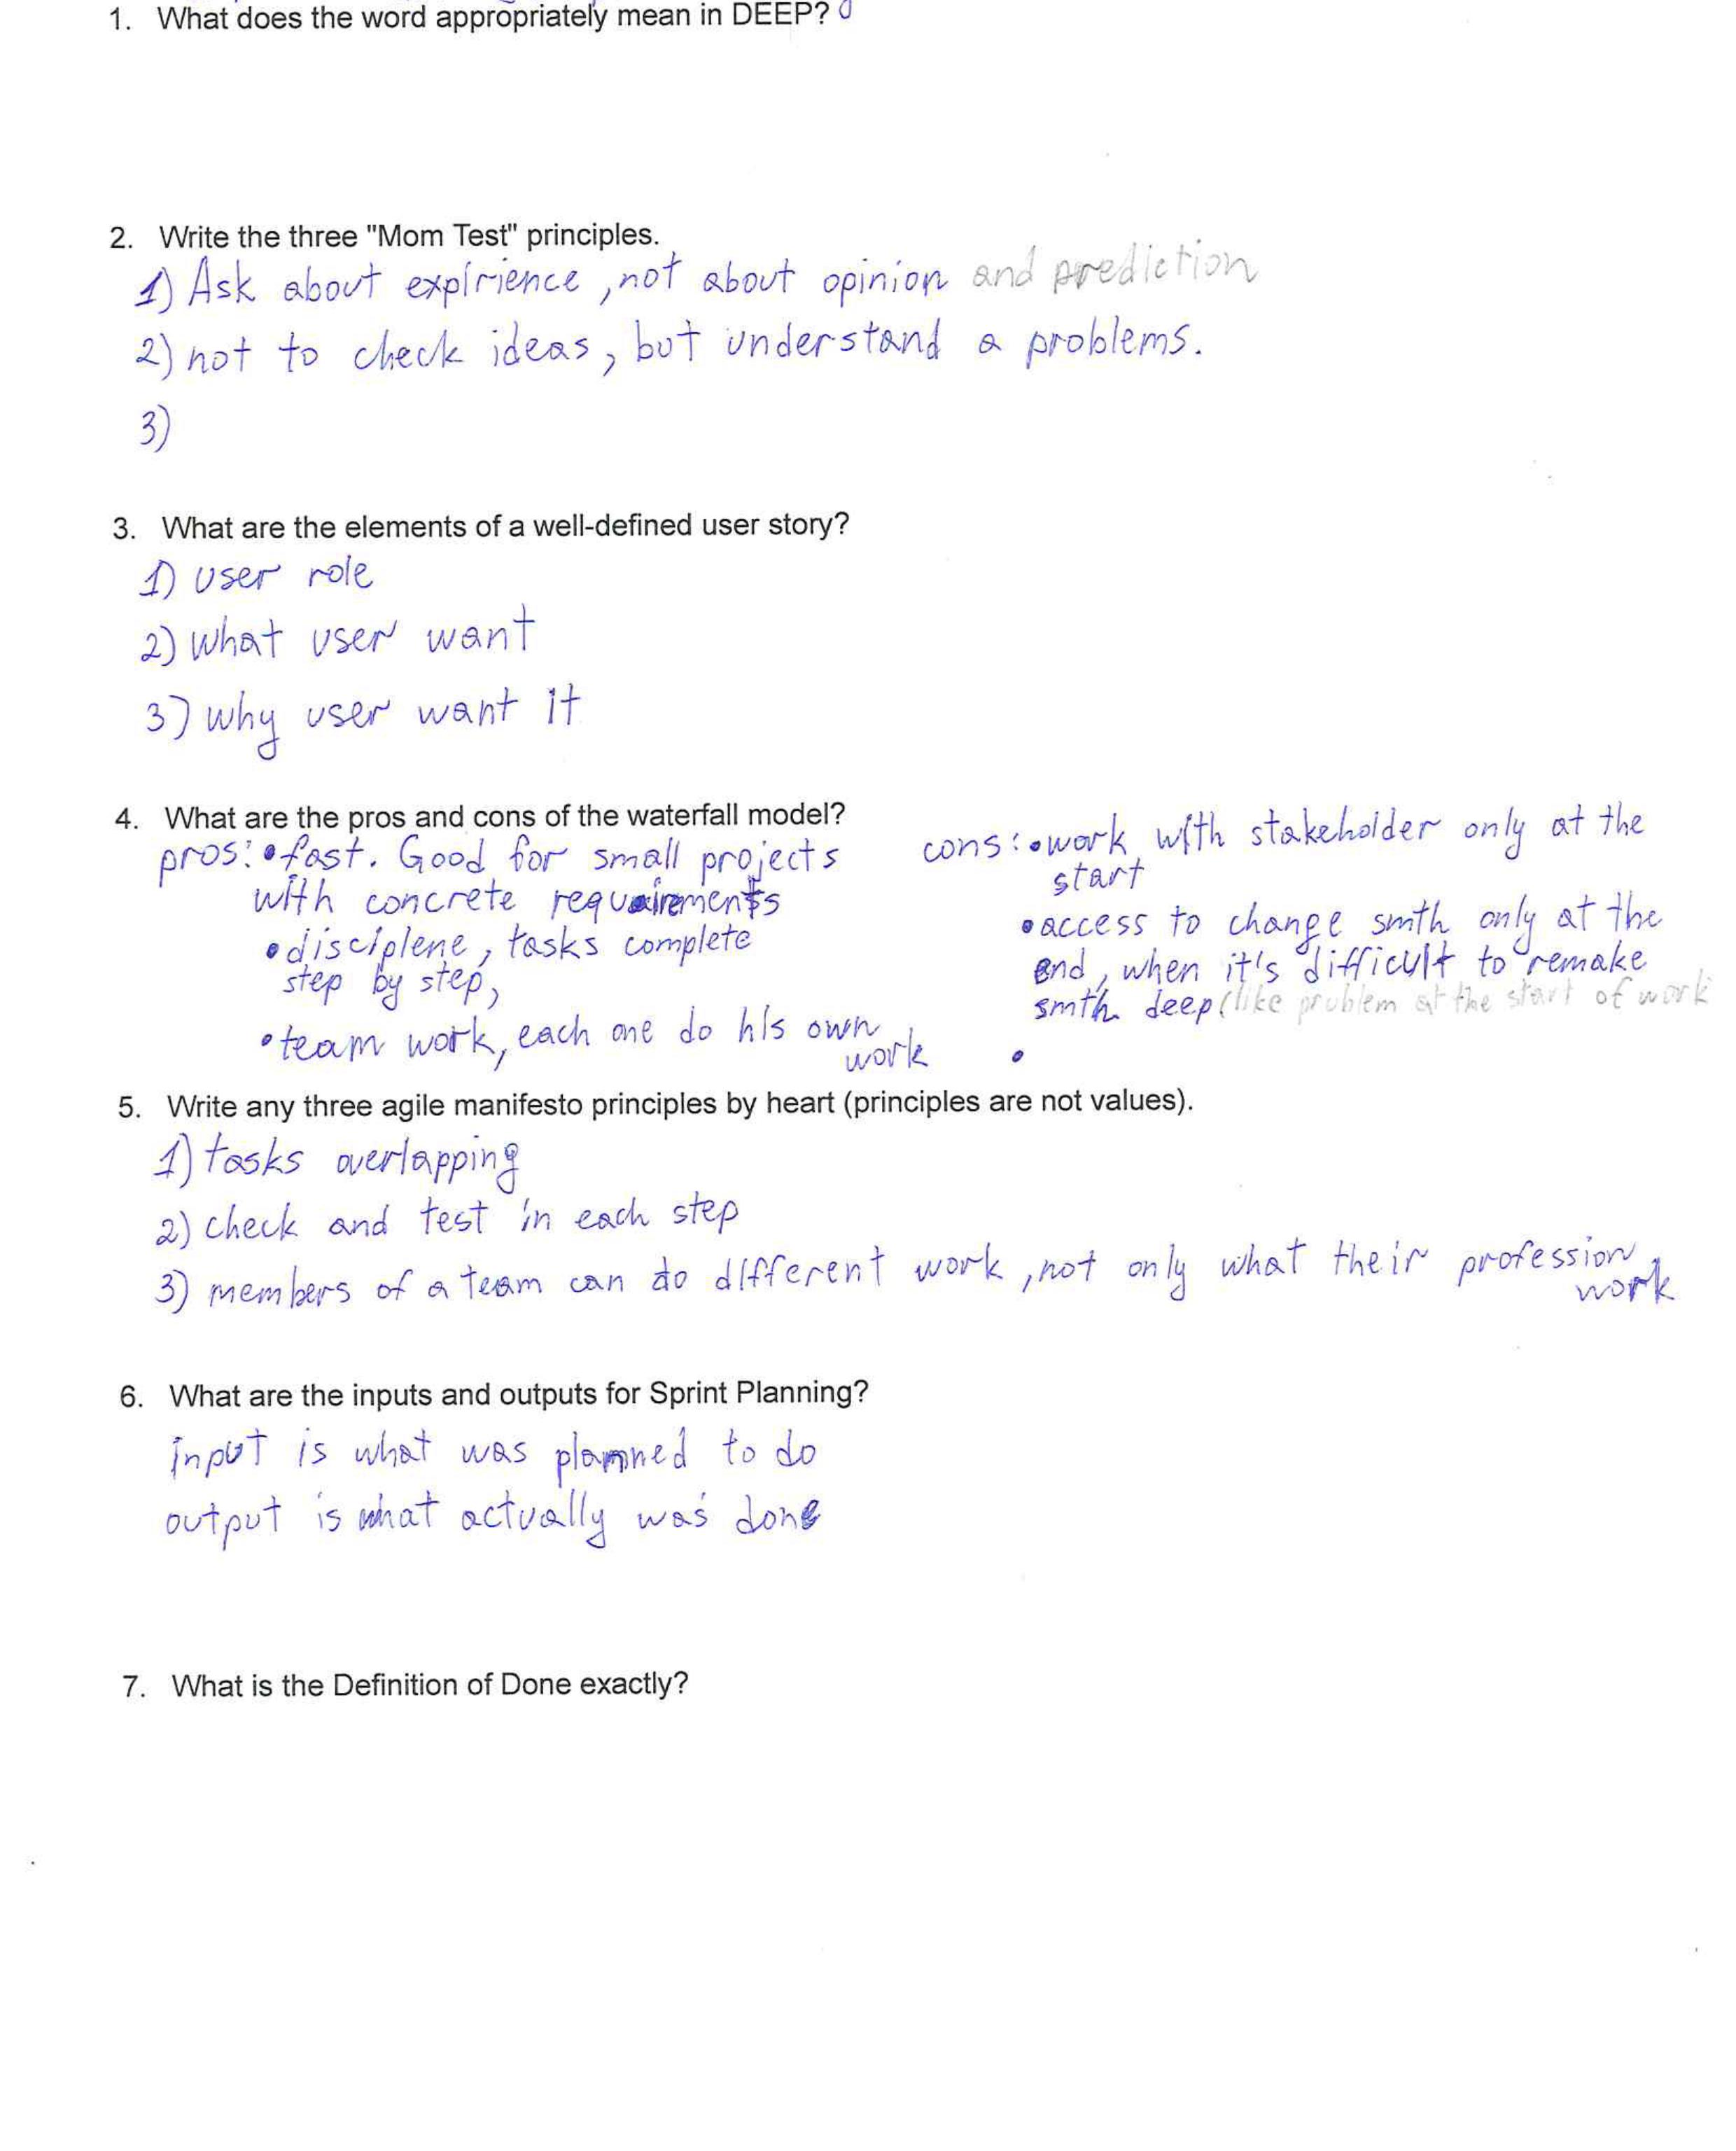 1. What does the word appropriately mean in DEEP?
2. Write the three "Mom Test" principles.
1) Ask about expirience, not about opinion and prediction
2) not to check ideas, but understand a problems.
3)
3. What are the elements of a well-defined user story?
1) user role
2) what user want
3) why user want it
4. What are the pros and cons of the waterfall model?
pros: • fast. Good for small projects
with concrete requairements
• disciplene, tasks complete
step by step,
• team work, each one do his own
work
cons: • work with stakeholder only at the
start
• access to change smth only at the
end, when it's difficult to remake
smth deep (like problem at the start of work
•
5. Write any three agile manifesto principles by heart (principles are not values).
1) tasks overlapping
2) check and test in each step
3) members of a team can do different work, not only what their profession
work
6. What are the inputs and outputs for Sprint Planning?
input is what was planned to do
output is what actually was done
7. What is the Definition of Done exactly?